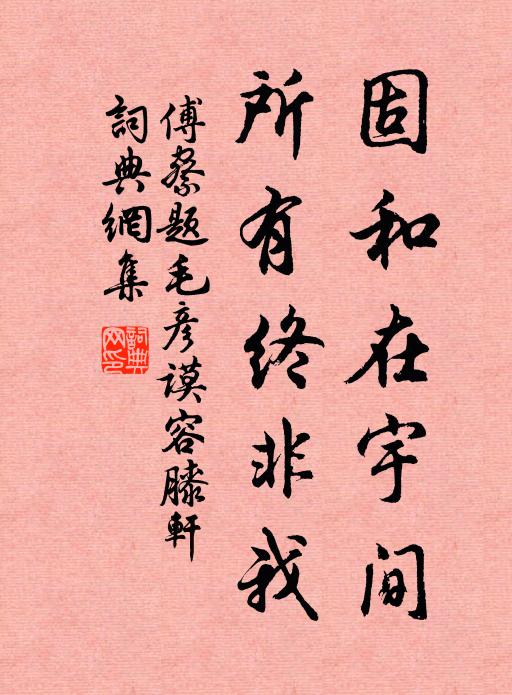 固和在宇间
所有终非我
傅察题毛彦谟容膝軒
詞典網集
詞典網印